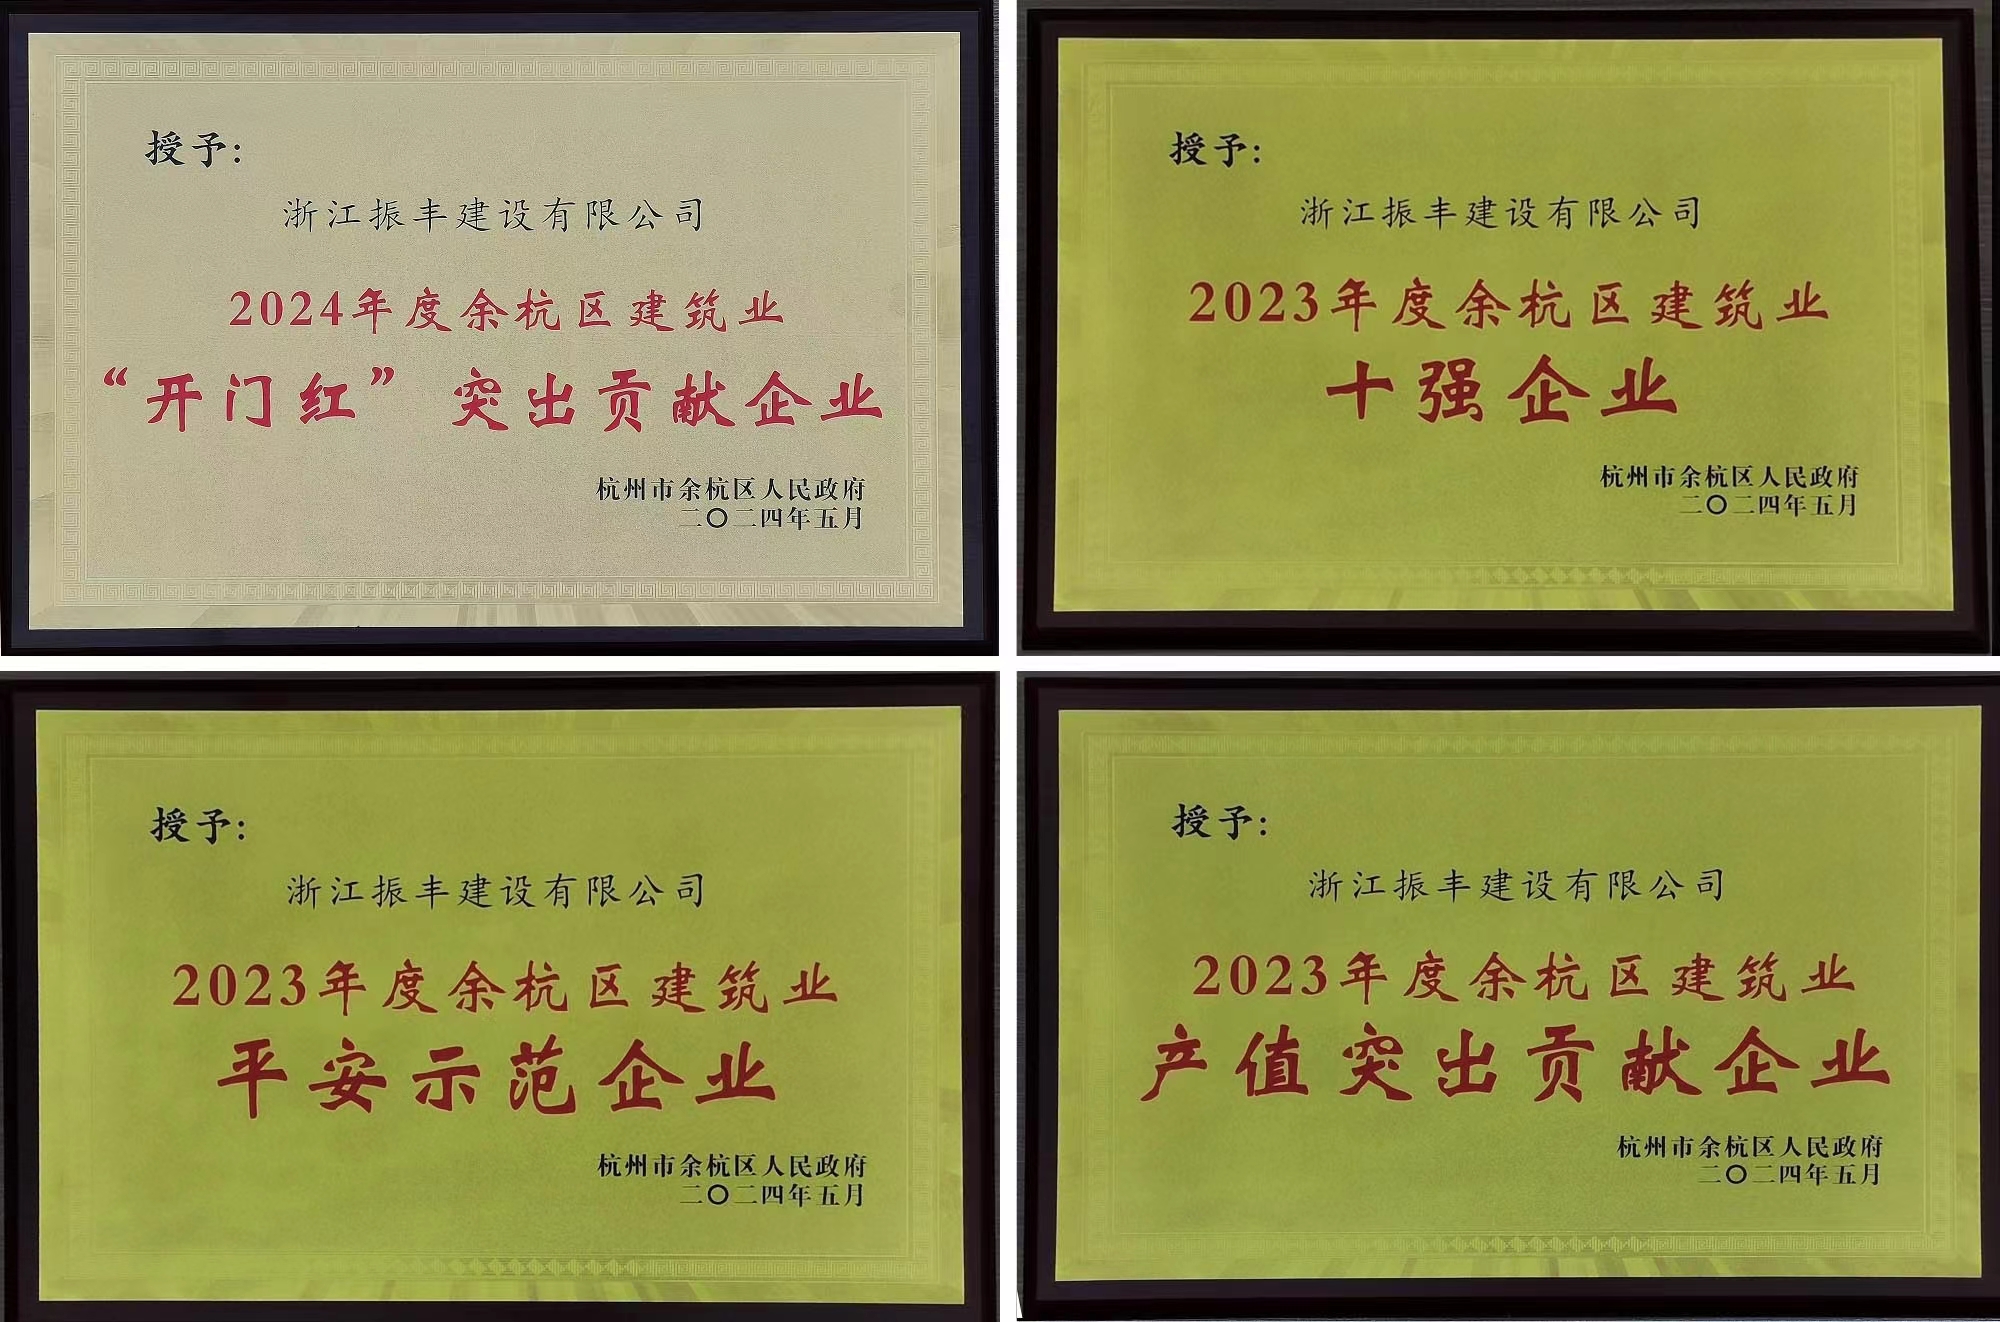 授予：
浙江振丰建设有限公司
2024年度余杭区建筑业
“开门红”突出贡献企业
杭州市余杭区人民政府
二〇二四年五月
授予：
浙江振丰建设有限公司
2023年度余杭区建筑业
十强企业
杭州市余杭区人民政府
二〇二四年五月
授予：
浙江振丰建设有限公司
2023年度余杭区建筑业
平安示范企业
杭州市余杭区人民政府
二〇二四年五月
授予：
浙江振丰建设有限公司
2023年度余杭区建筑业
产值突出贡献企业
杭州市余杭区人民政府
二〇二四年五月